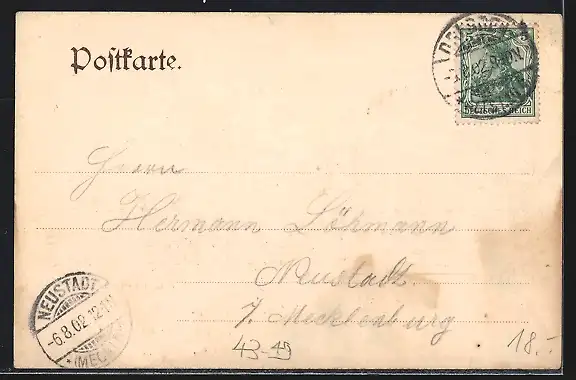 Postkarte.
DEUTSCHES REICH
Herrn
Hermann Löhmann
Neustadt
i. Mecklenburg
NEUSTADT
-6.8.02.12-1N
* (MECKL.)
43-49
18.-